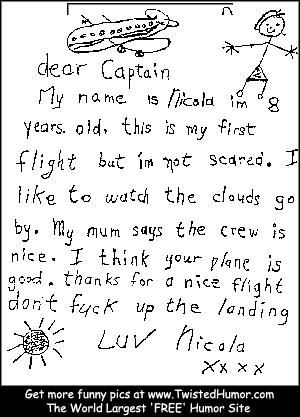 dear Captain
My name is Nicola im 8
years. old, this is my first
flight but im not scared. I
like to watch the clouds go
by. My mum says the crew is
nice. I think your plane is
good. thanks for a nice flight
don't fuck up the landing
LUV Nicola
xxxx
Get more funny pics at www.TwistedHumor.com
The World Largest 'FREE' Humor Site